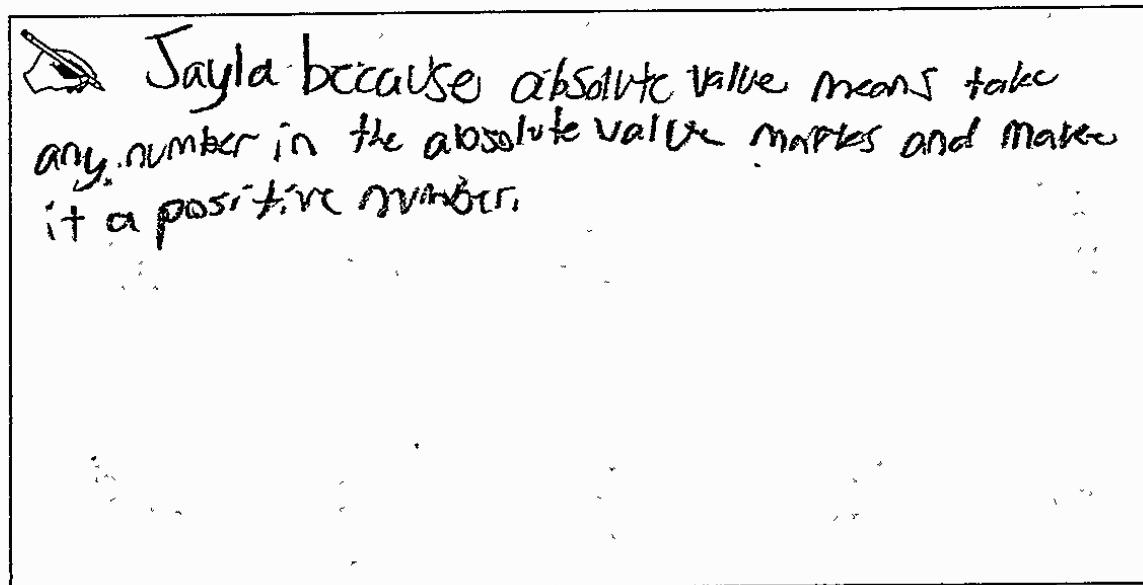 Jayla because absolute value means take
any number in the absolute value markes and make
it a positive number.